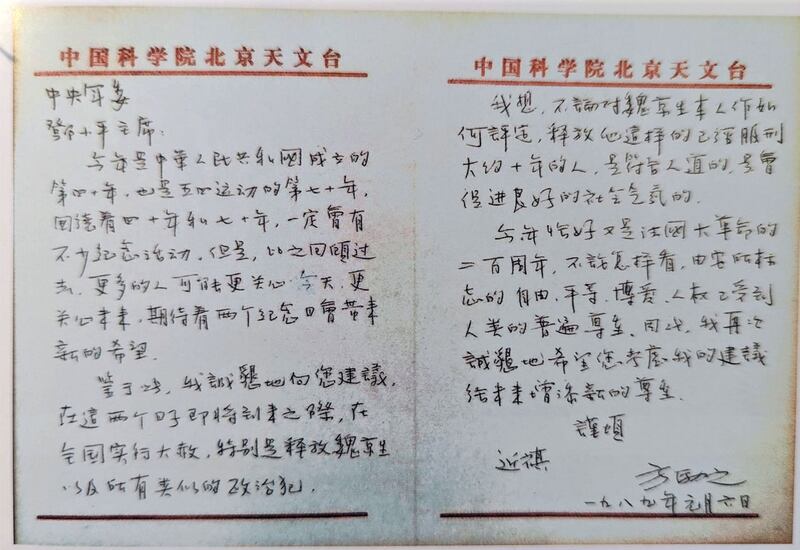 中国科学院北京天文台
中央军委
邓小平主席：
今年是中華人民共和國成立的
第四十年，也是五四运动的第七十年，
回繞着四十年和七十年，一定會有
不少纪念活动，但是，比之回顧过
去，更多的人可能更关心今天，更
关心未来，期待着两个纪念日會带来
新的希望。
鉴于此，我誠懇地向您建議，
在這两个日子即將到来之際，在
全国实行大赦，特别是释放魏京生
以及所有类似的政治犯。
中国科学院北京天文台
我想，不論对魏京生本人作如
何評定，释放他這樣的已經服刑
大约十年的人，是符合人道的，是會
促進良好的社会气氛的。
今年恰好又是法國大革命的
二百周年，不論怎样看，由它所标
志的自由、平等、博爱、人权已受到
人类的普遍尊重。因此，我再次
誠懇地希望您考虑我的建議
给未来增添新的尊重。
謹頌
近祺
方励之
一九八九年元月六日